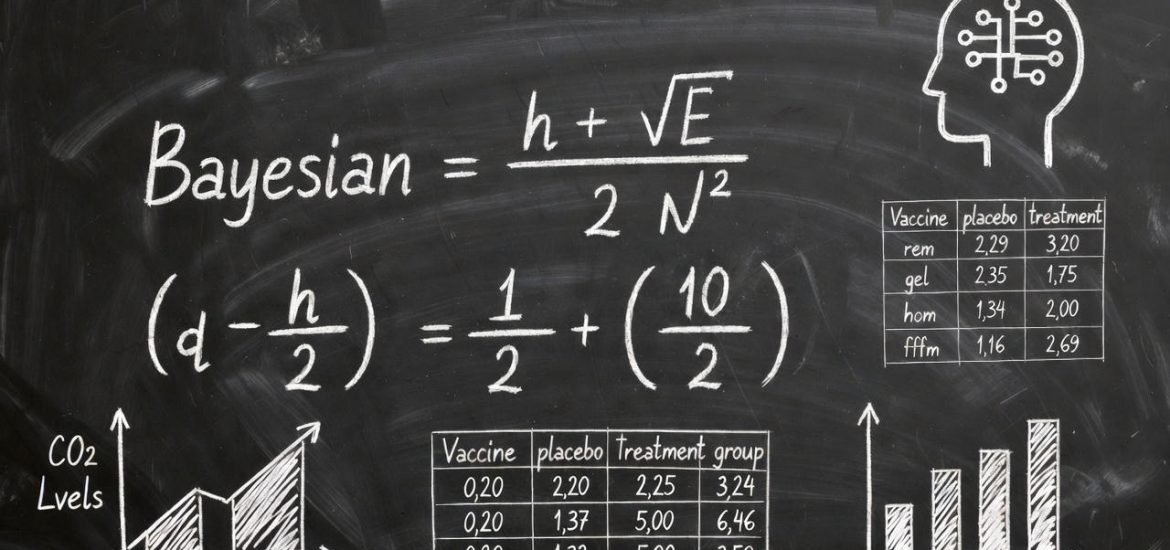 Bayesian = h + √E / 2 N²
(d - h/2) = 1/2 + (10/2)
Vaccine placebo treatment
rem 2,29 3,20
gel 2,35 1,75
hom 1,34 2,00
fffm 1,16 2,69
CO2
Lvels
Vaccine placebo Treatment group
0,20 2,20 2,25 3,24
0,20 1,37 5,00 6,46